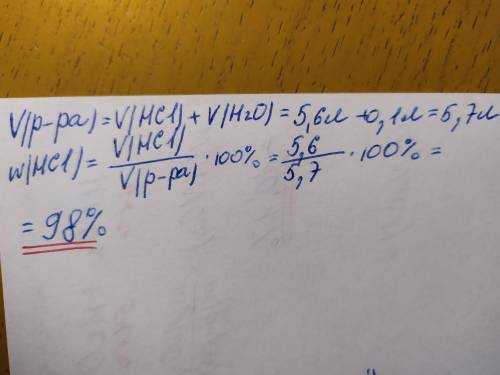 V(р-ра) = V(HCl) + V(H2O) = 5,6л + 0,1л = 5,7л
w(HCl) = V(HCl) / V(р-ра) · 100% = 5,6 / 5,7 · 100% =
= 98%